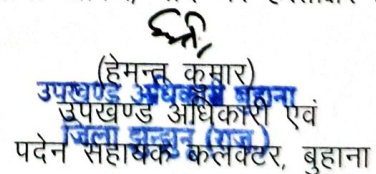 (हेमन्त कुमार)
उपखण्ड अधिकारी बुहाना
उपखण्ड अधिकारी एवं
जिला झुन्झुनू (राज.)
पदेन सहायक कलेक्टर, बुहाना